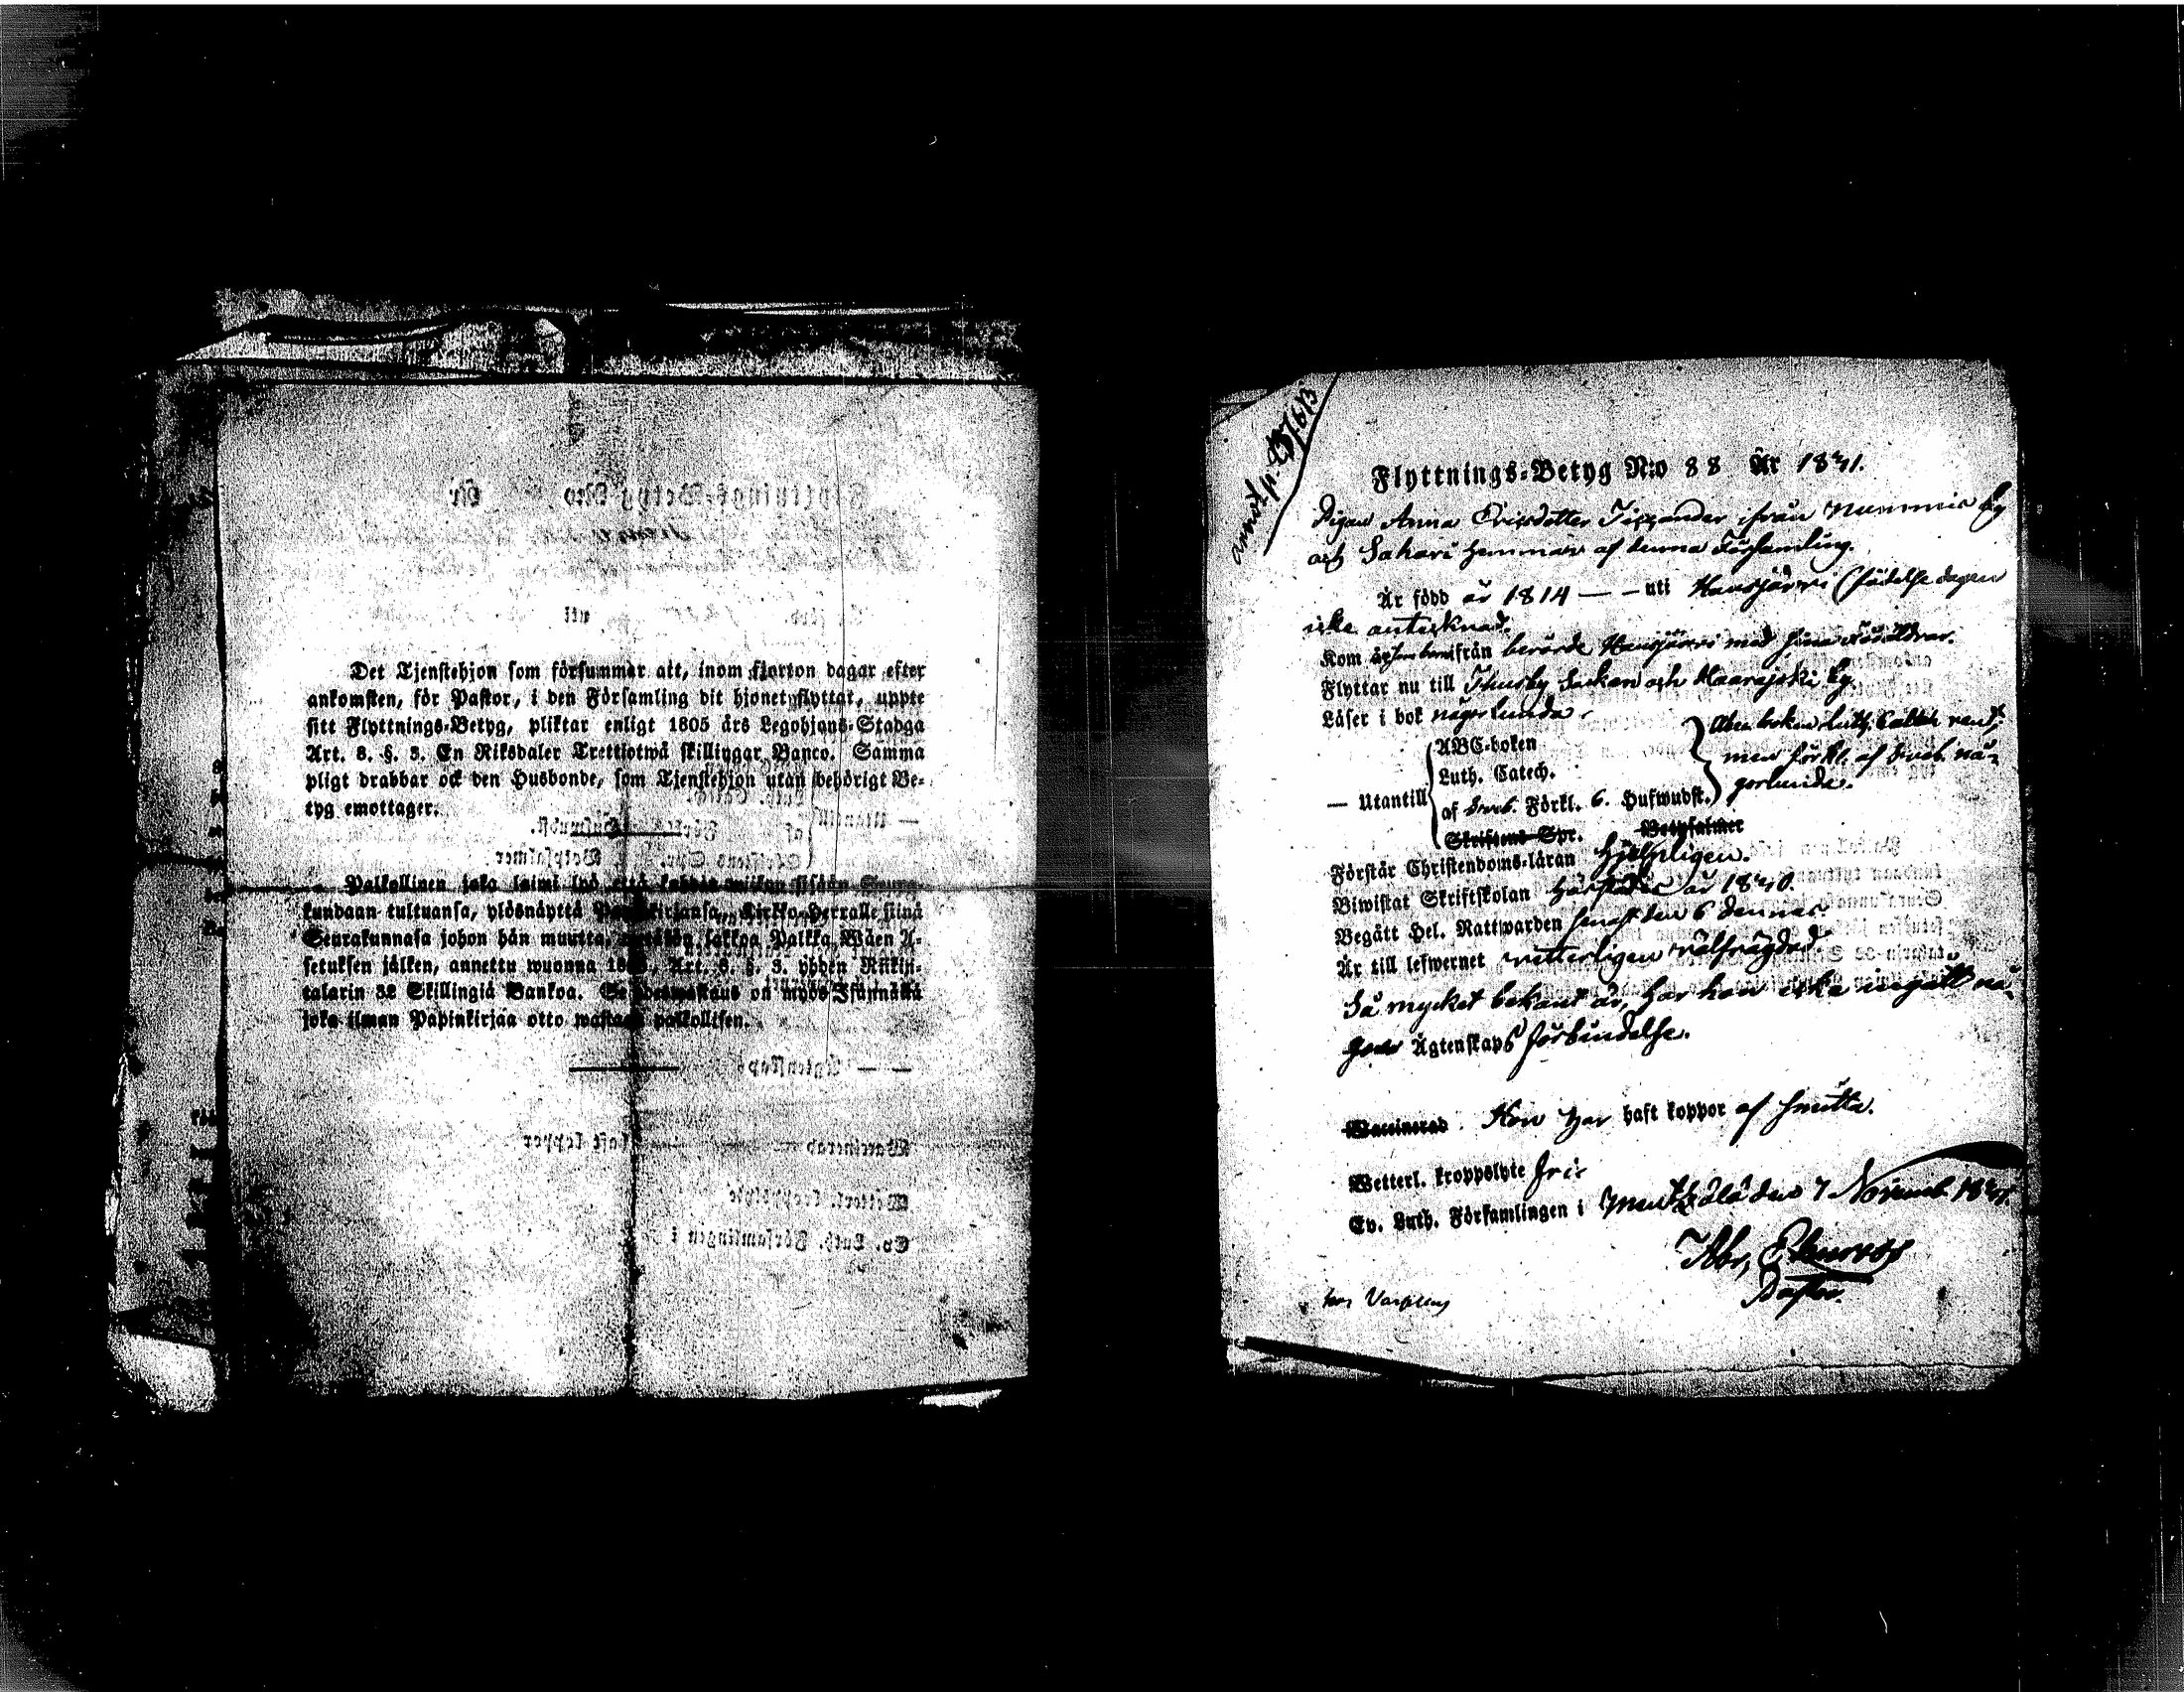 Det Tjenstehjon som försummar att, inom fjorton dagar efter
ankomsten, för Pastor, i den Församling dit hjonet flyttat, uppte
sitt Flyttnings-Betyg, pliktar enligt 1805 års Legohjons-Stadga
Art. 8. §. 3. En Riksdaler Trettiotwå skillingar Banco. Samma
pligt drabbar ock den Husbonde, som Tjenstehjon utan behörigt Be-
tyg emottager.
Palkollinen joka laimi lyö että kahden wiikon sisään Seura-
kundaan tultuansa, ylösnäyttä Kirkko-Herralle siinä
Seurakunnasa johon hän muutta, sakkoa Palkka Wäen A-
setuksen jälken, annettu wuonna Art. 8. §. 3. yhden Riikin-
talarin 32 Skillingiä Bankoa. on myös Isännällä
joka ilman Papinkirjaa otto palkollisen.
Flyttnings-Betyg N:o 88 År 1841.
Pigan Anna Ericsdotter från Nummis by
och Sakari hemman af denna Församling.
Är född år 1814 — — uti Hausjärvi (födelse dagen
icke antecknad.
Kom från berörde Hausjärvi med sina Föräldrar.
Flyttar nu till Thusby Socken och Haarajoki by.
Läser i bok någorlunda.
— Utantill
ABC-boken
Luth. Catech.
af Sveb. Förkl. 6. Hufwudst.
Skriftens Spr. Botpsalmer
Aben boken Luth. Catech rent,
men förkl. af Sveb. nå-
gorlunda.
Förstår Christendoms-läran hjelpligen.
Biwistat Skriftskolan härstädes år 1840.
Begått Hel. Nattwarden senast den 6 dennes.
Är till lefwernet wetterligen wälfrägdad.
Så mycket bekant är, har hon icke ingått nå-
gon Ägtenskaps förbindelse.
Waccinerad. Hon har haft koppor af smitta.
Wetterl. kroppslyte fri
Ev. Luth. Församlingen i Mentzälä den 7 Novemb. 1841.
Pastor.